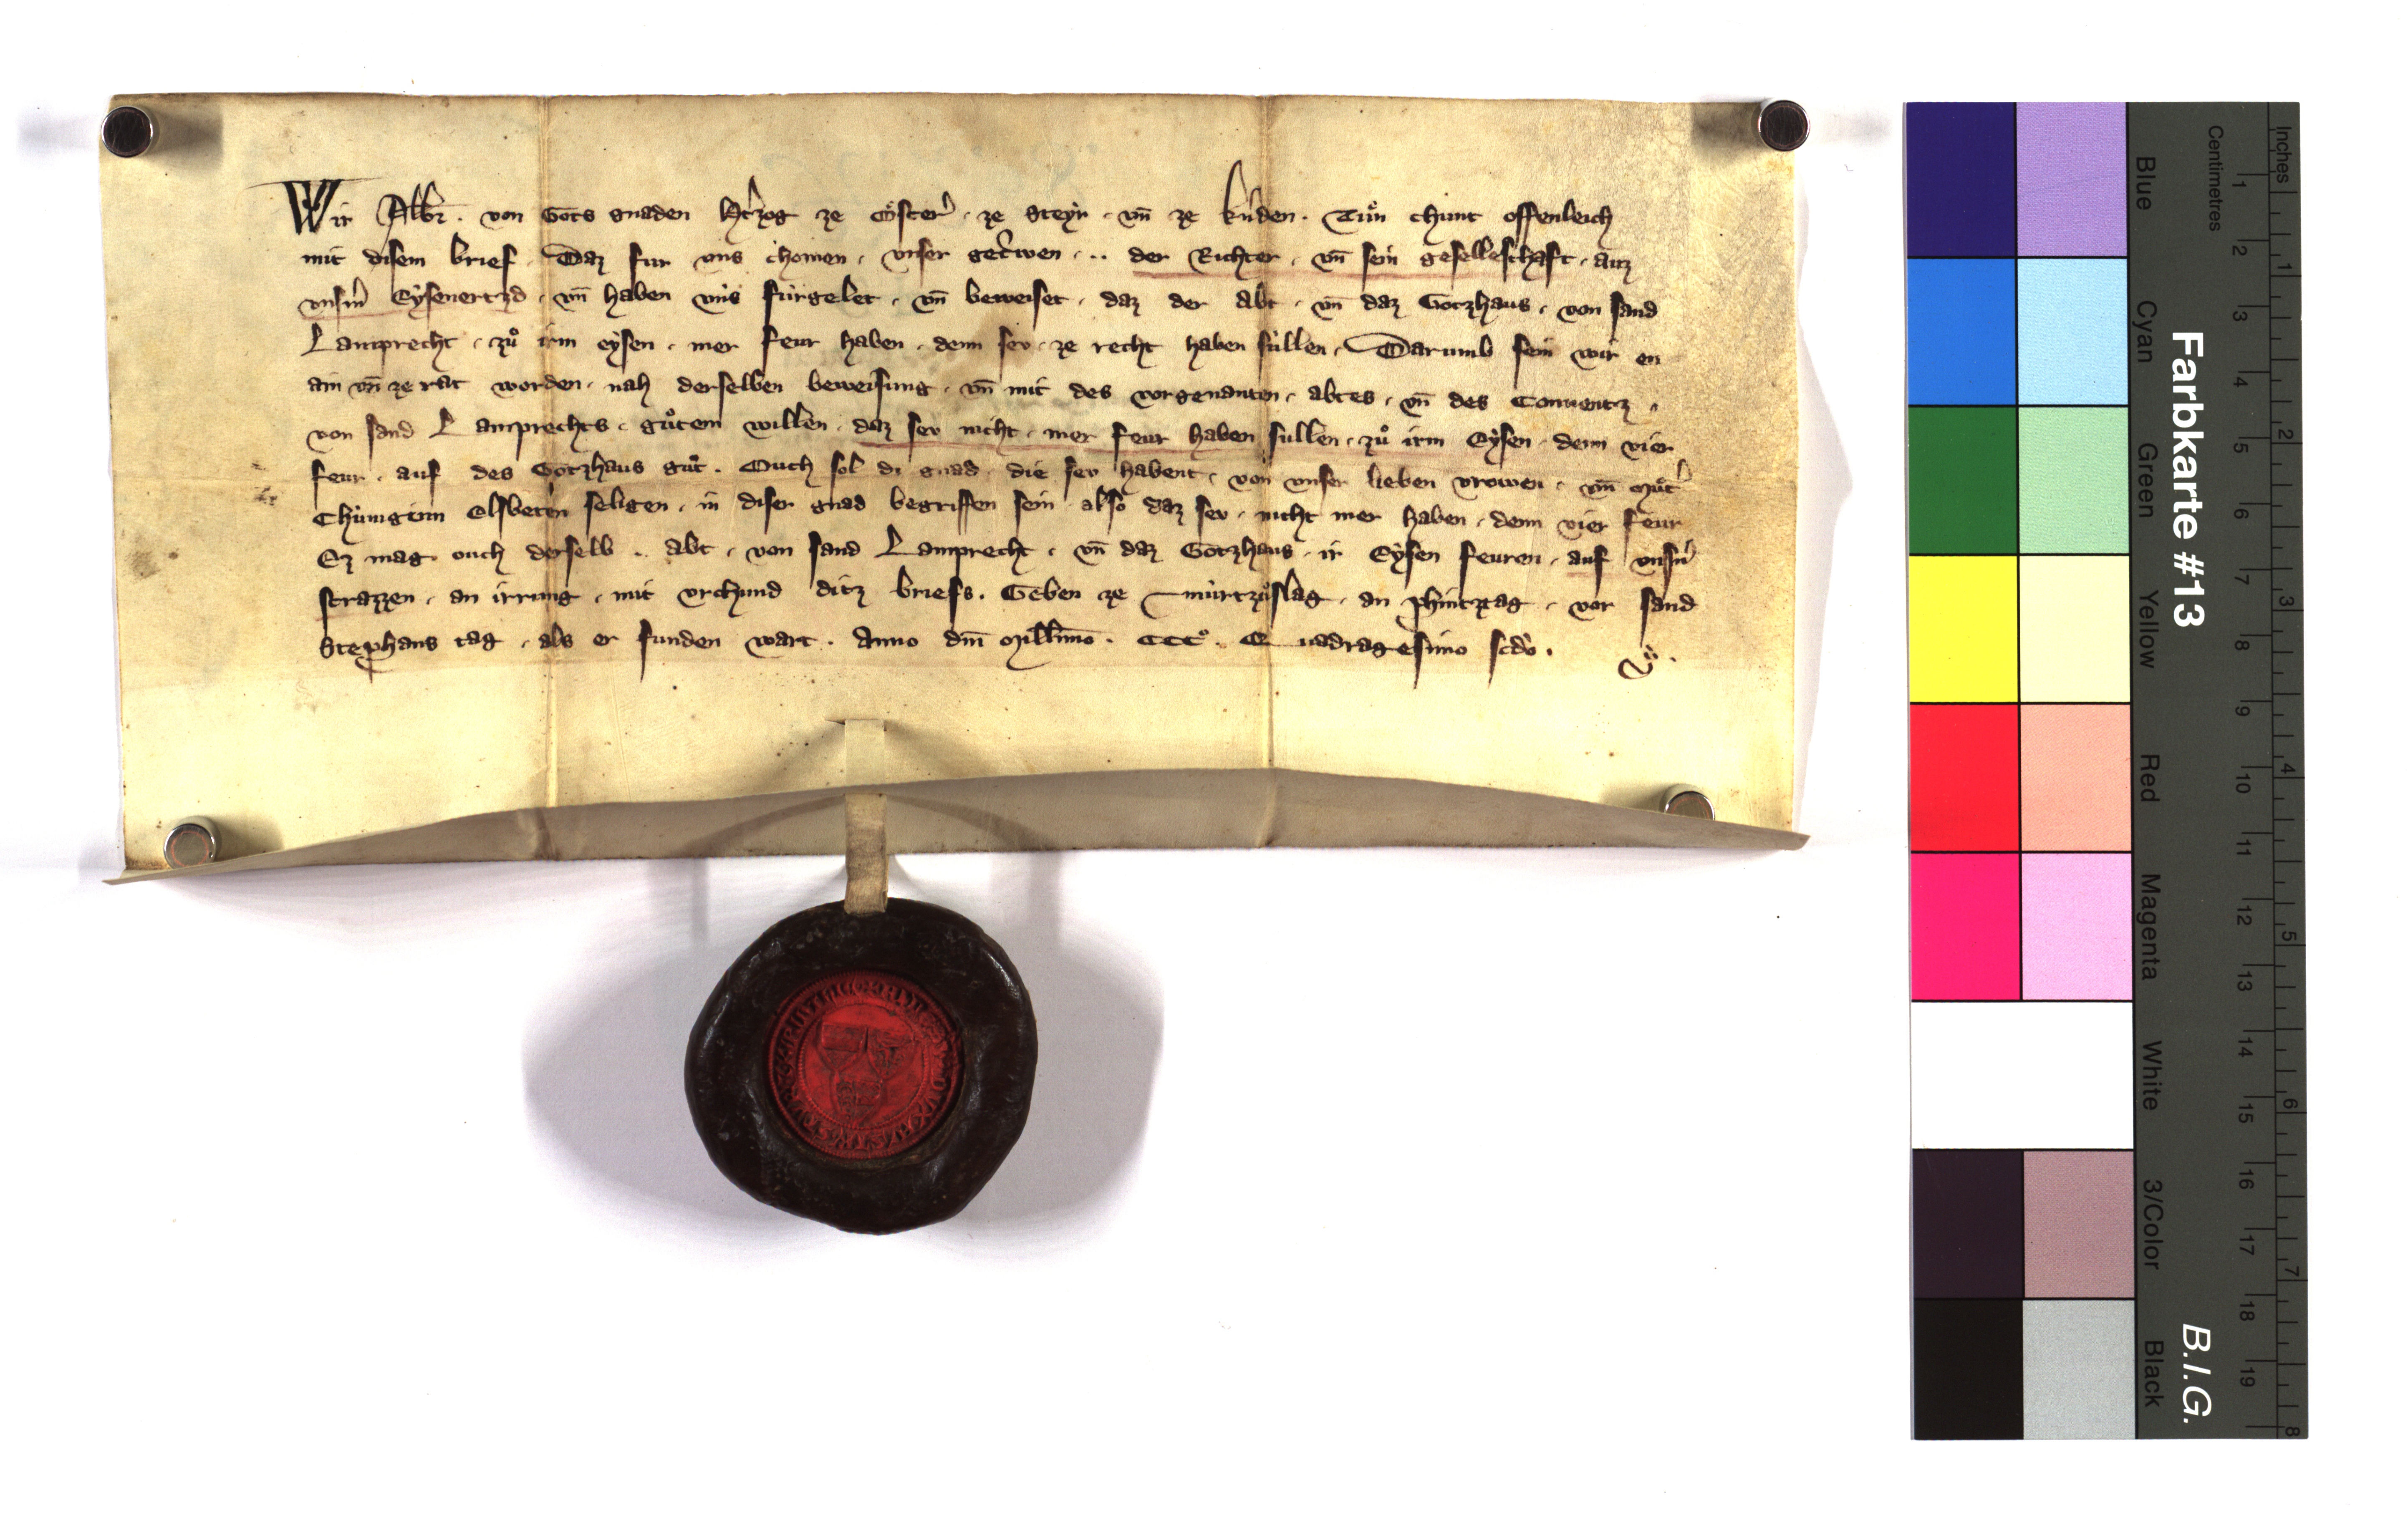 Wir Albr̄. von Gots gnaden Htzog ze Oͤster̉. ze Steyr. vn̄ ze kn̉den. Tuͦn chunt offenleich
mit disem brief. Daz fur uns chomen. vnser get̉wen. .. der Richter. vn̄ sein geselleschaft. auz
vnsm̉ Eysenertzd. vn̄ haben vns fürgelet. vn̄ beweiset. daz der Abt. vn̄ daz Gotzhaus. von sand
Lamprecht. zuͦ irm eysen. mer feur haben. denn sev. ze recht haben süllen. Darumb sein wir en
ain vn̄ ze rat worden. nah derselben beweisung. vn̄ mit des vorgenanten. abtes. vn̄ des Conuentz.
von sand Lamprechts. guͦtem willen. daz sev nicht. mer feur haben sullen. zuͦ irm Eysen. denn vier
feur. auf des Gotzhaus guͦt. Ouch sol di gnad. die sev habent. von vnser lieben vrowen. vn̄ muͦt̉
Chünginn Elsbeten seligen. in diser gnad begriffen sein. also daz sev. nicht mer haben. denn vier feur
Ez mag ouch derselb .. abt. von sand Lamprecht. vn̄ daz Gotzhaus. ir Eysen feuren. auf vnsn̉
strazzen. an irrung. mit vrchund ditz briefs. Geben ze mürtzuͦslag. an phintztag. vor sand
Stephans tag. als er funden wart. Anno dm̄ Mill̄imo. CCCͦ. Quadragesimo scdo.
Farbkarte #13
B.I.G.
Blue
Cyan
Green
Yellow
Red
Magenta
White
3/Color
Black
Centimetres
1 2 3 4 5 6 7 8 9 10 11 12 13 14 15 16 17 18 19
Inches
1 2 3 4 5 6 7 8